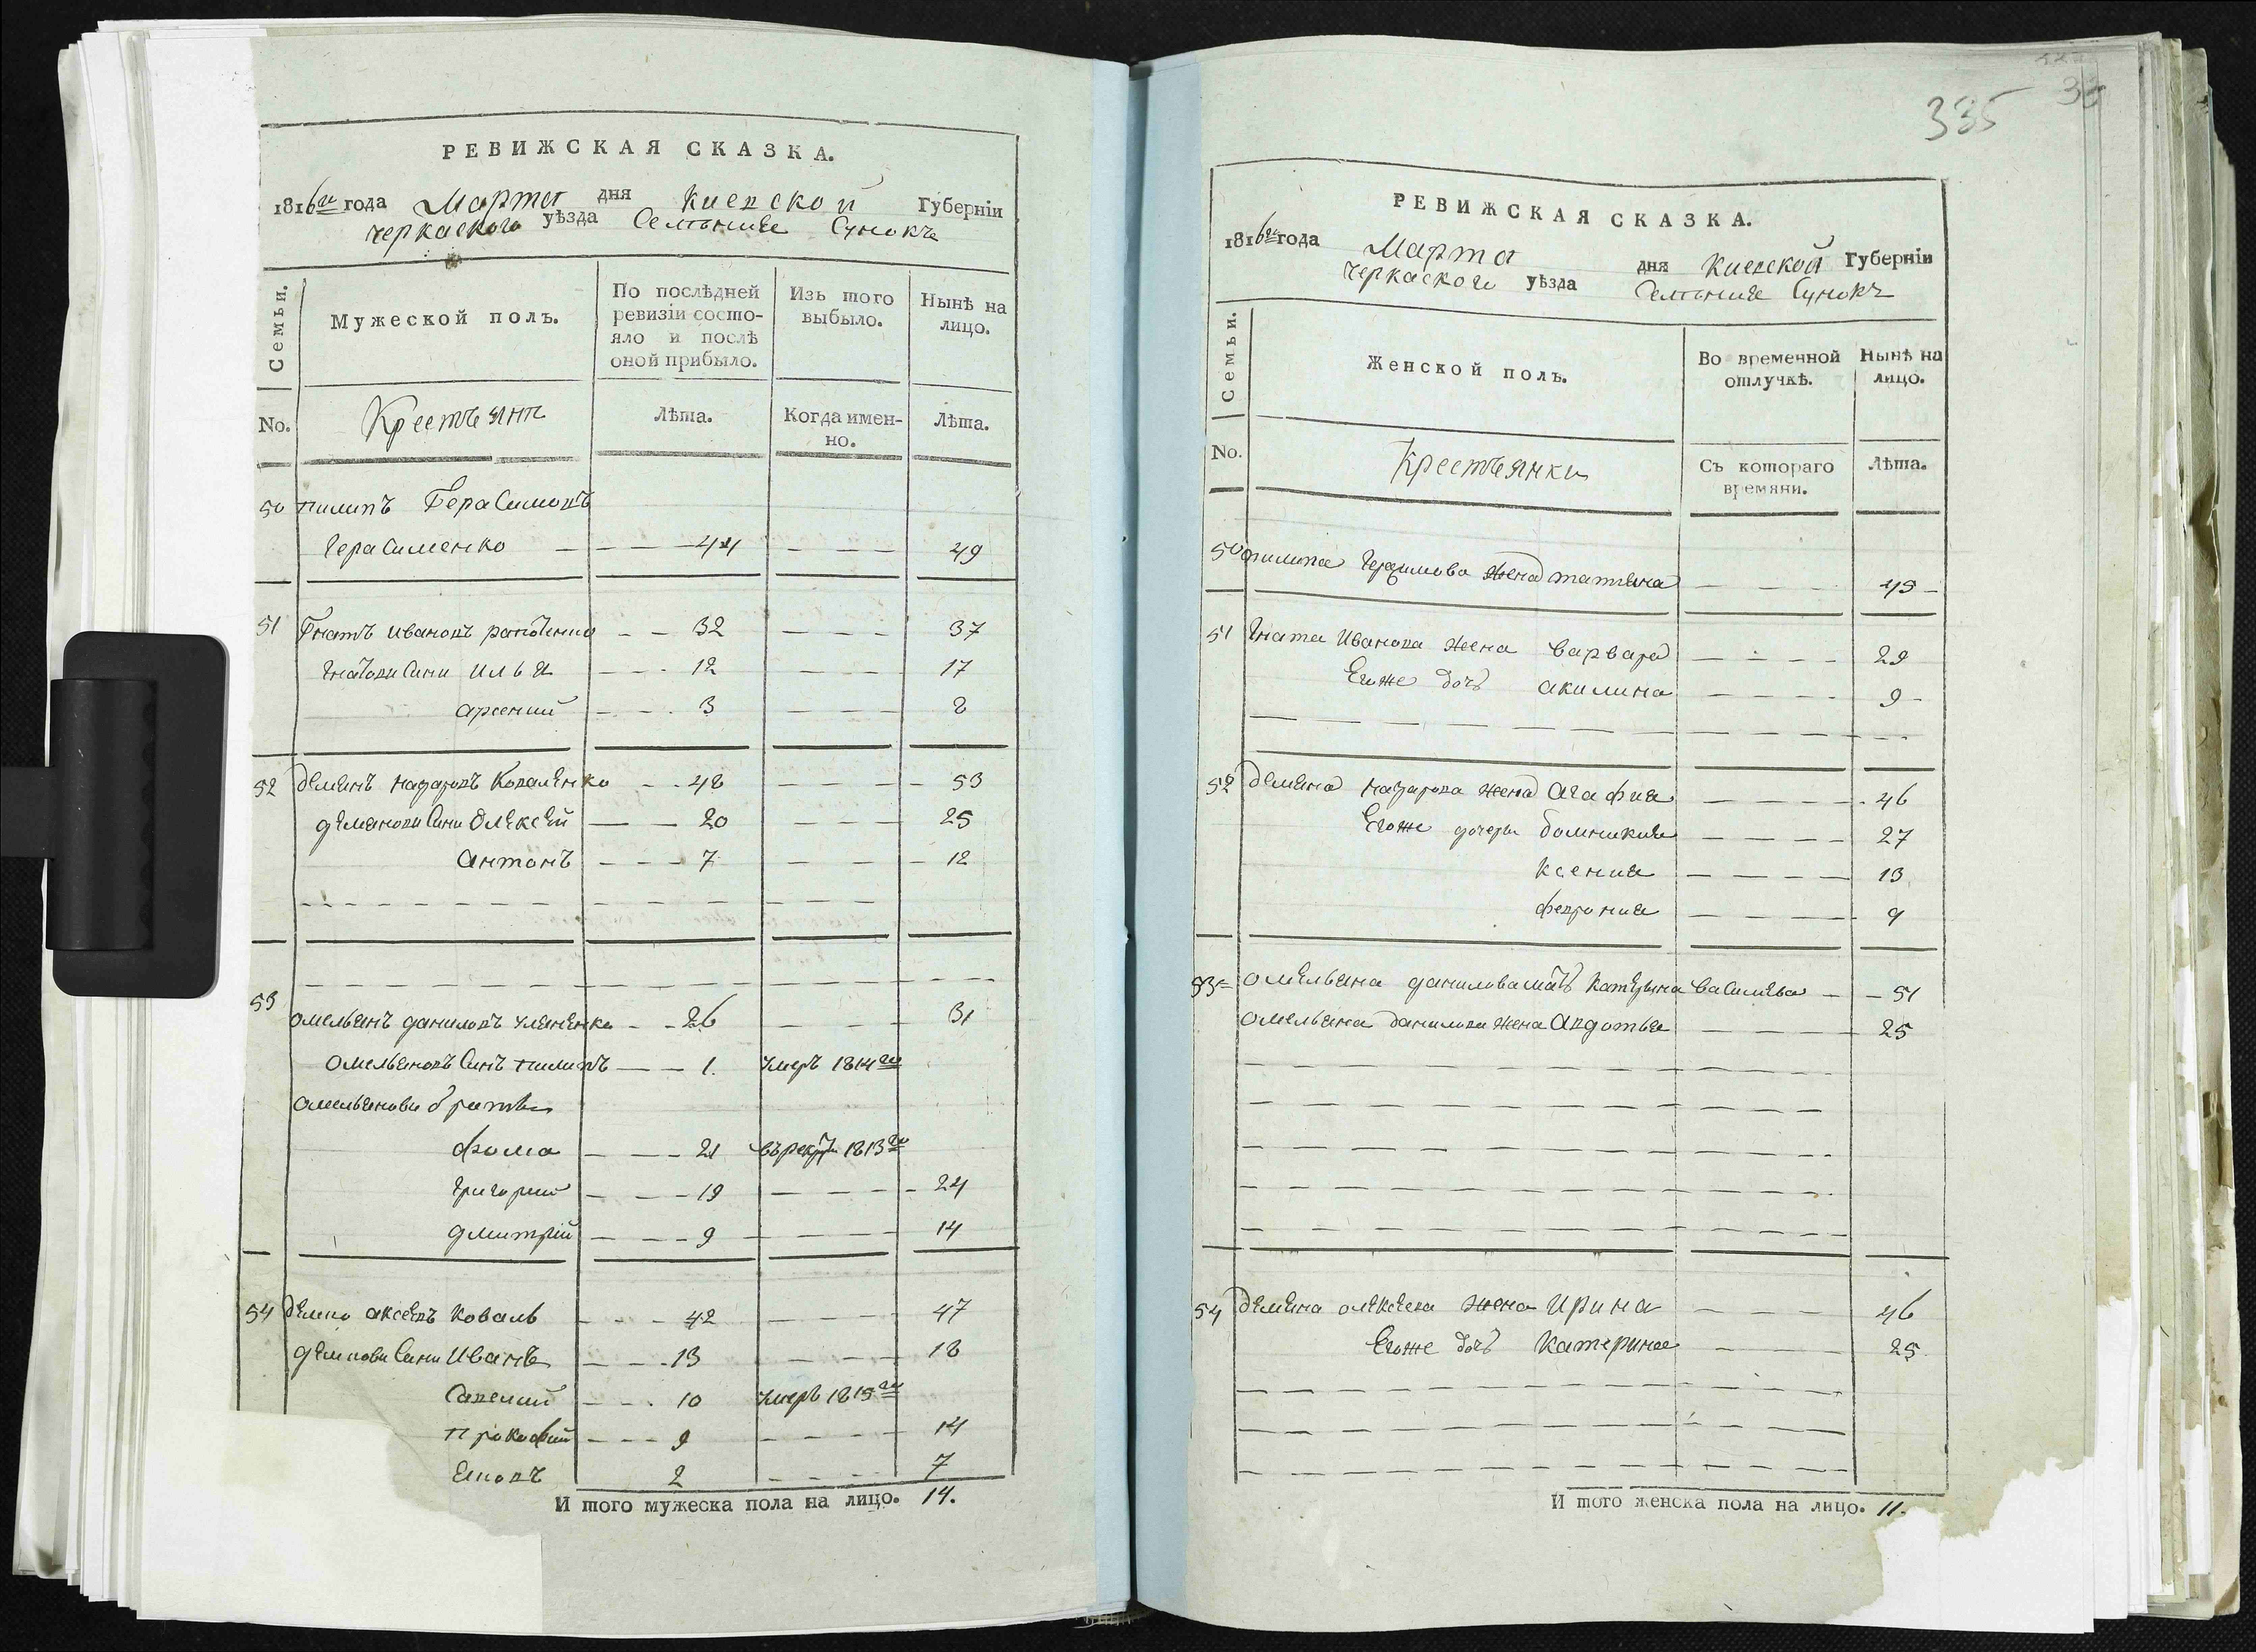 РЕВИЖСКАЯ СКАЗКА.
1816го года Марта дня Киевской Губерніи
Черкаского уѣзда Селѣния Сунокъ
Семьи.
Мужеской полъ.
По послѣдней ревизіи состояло и послѣ оной прибыло.
Изъ того выбыло.
Нынѣ на лицо.
No.
Крестъянъ
Лѣта.
Когда именно.
Лѣта.
50 Пилипъ Герасимовъ
Герасименко 44 49
51 Гнатъ Ивановъ 32 37
Гнатови Сини Илья 12 17
Арсений 3 8
52 Демянъ Назаровъ Коваленко 48 53
Демянови Сини Олексей 20 25
Антонъ 7 12
53
Омельянъ Даниловъ 26 31
Омельяновъ Синъ Пилипъ 1. умеръ 1814го
Омельянови братья
Фома 21 въ рекруты 1813го
Григорий 19 24
Дмитрий 9 14
54 Аксеевъ Коваль 42 47
Сини Иванъ 13 18
Савелий 10 умеръ 1815го
Прокофий 9 14
Яковъ 2 7
И того мужеска пола на лицо. 14.
335
РЕВИЖСКАЯ СКАЗКА.
1816го года Марта дня Киевской Губерніи
Черкаского уѣзда Селѣния Сунокъ
Семьи.
Женской полъ.
Во временной отлучкѣ.
Нынѣ на лицо.
No.
Крестъянки
Съ котораго времяни.
Лѣта.
50 Пилипа Герасимова жена Татияна 45
51 Гната Иванова жена Варвара 29
Егоже дочь Акилина 9
52 Демяна Назарова жена Агафия 46
Егоже дочери Домникия 27
Ксения 13
Феврония 9
53 Омельяна Данилова мать Катерина Василева 51
Омельяна Данилова жена Авдотья 25
54 Демяна Олексеева жена Ирина 46
Егоже дочь Катерина 25
И того женска пола на лицо. 11.